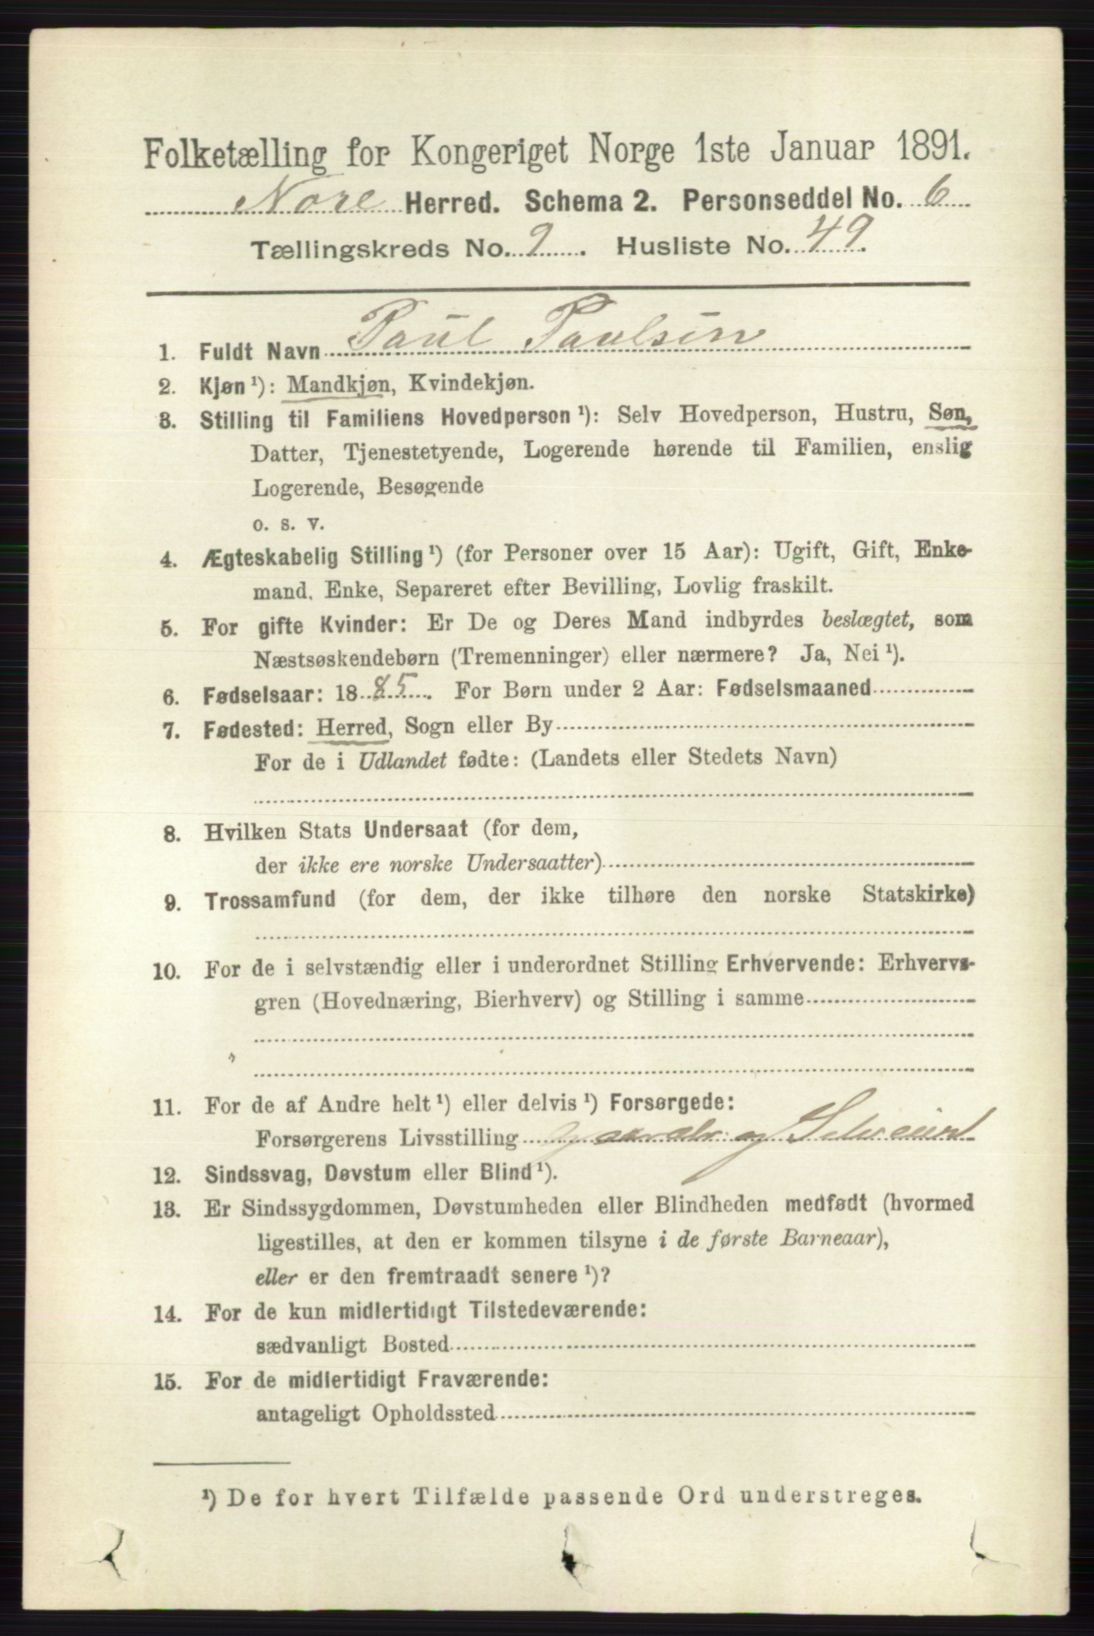 Folketælling for Kongeriget Norge 1ste Januar 1891.
Nore Herred. Schema 2. Personseddel No. 6
Tællingskreds No. 9. Husliste No. 49.
1. Fuldt Navn Paul Paulsen
2. Kjøn ¹): Mandkjøn, Kvindekjøn.
3. Stilling til Familiens Hovedperson ¹): Selv Hovedperson, Hustru, Søn,
Datter, Tjenestetyende, Logerende hørende til Familien, enslig
Logerende, Besøgende
o. s. v.
4. Ægteskabelig Stilling ¹) (for Personer over 15 Aar): Ugift, Gift, Enke-
mand, Enke, Separeret efter Bevilling, Lovlig fraskilt.
5. For gifte Kvinder: Er De og Deres Mand indbyrdes beslægtet, som
Næstsøskendebørn (Tremenninger) eller nærmere? Ja, Nei ¹).
6. Fødselsaar: 1885. For Børn under 2 Aar: Fødselsmaaned
7. Fødested: Herred, Sogn eller By
For de i Udlandet fødte: (Landets eller Stedets Navn)
8. Hvilken Stats Undersaat (for dem,
der ikke ere norske Undersaatter)
9. Trossamfund (for dem, der ikke tilhøre den norske Statskirke)
10. For de i selvstændig eller i underordnet Stilling Erhvervende: Erhvervs-
gren (Hovednæring, Bierhverv) og Stilling i samme
11. For de af Andre helt ¹) eller delvis ¹) Forsørgede:
Forsørgerens Livsstilling og Selveiend
12. Sindssvag, Døvstum eller Blind ¹).
13. Er Sindssygdommen, Døvstumheden eller Blindheden medfødt (hvormed
ligestilles, at den er kommen tilsyne i de første Barneaar),
eller er den fremtraadt senere ¹)?
14. For de kun midlertidigt Tilstedeværende:
sædvanligt Bosted
15. For de midlertidigt Fraværende:
antageligt Opholdssted
¹) De for hvert Tilfælde passende Ord understreges.